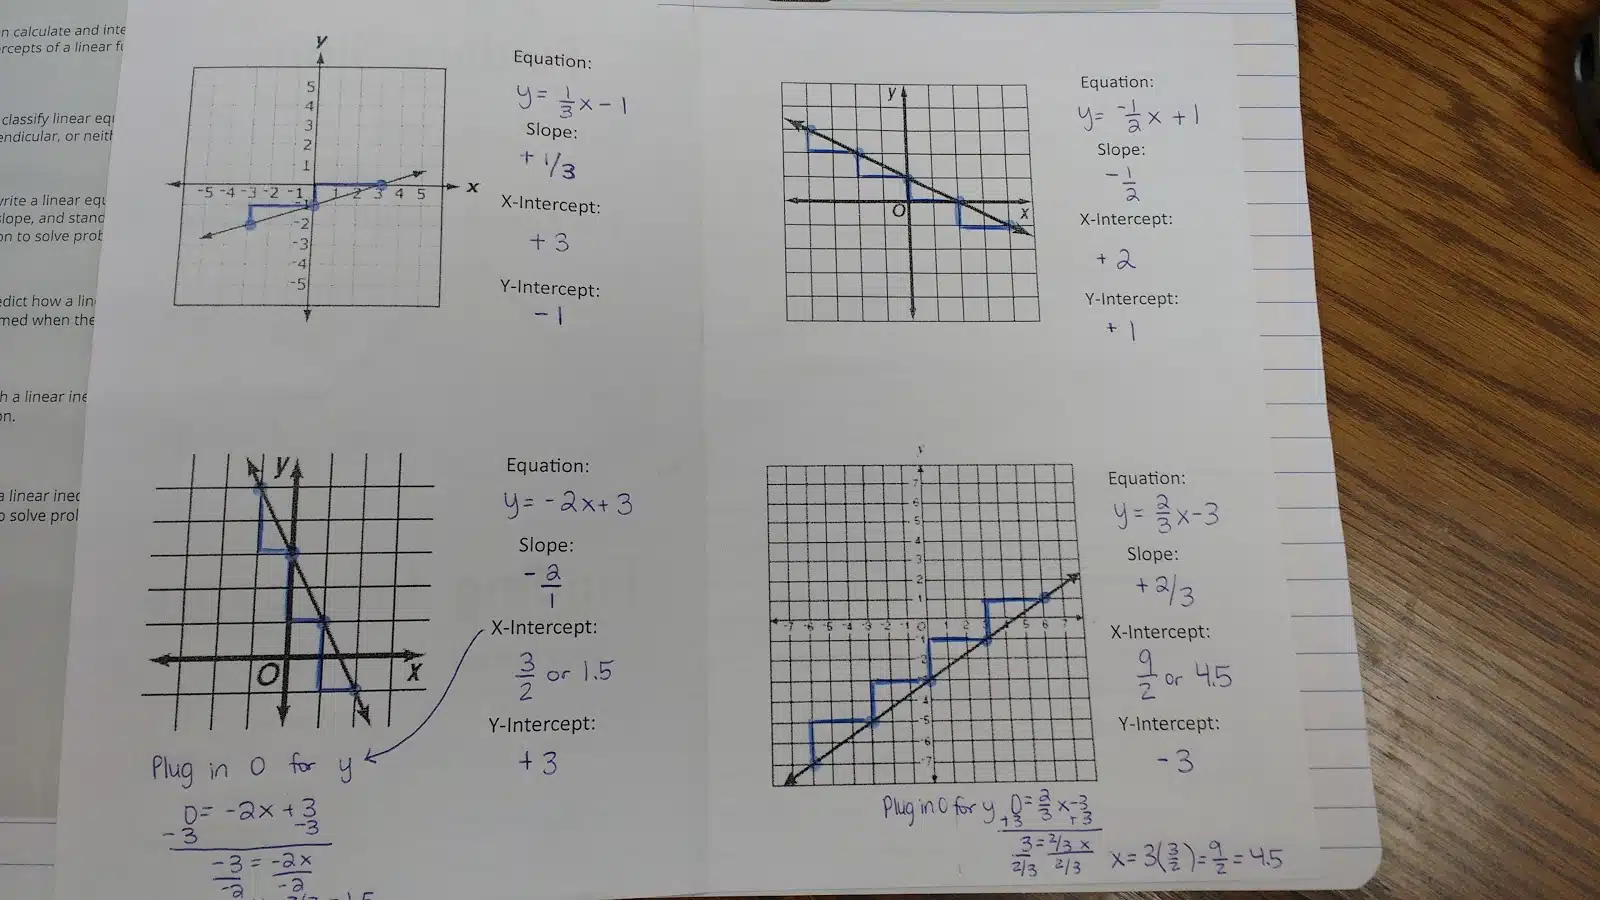 n calculate and inte
rcepts of a linear fu
classify linear equ
endicular, or neith
write a linear equ
slope, and stand
on to solve prob
edict how a lin
med when the
h a linear ine
on.
a linear ineq
o solve prol
y
5
4
3
2
1
-5 -4 -3 -2 -1 1 2 3 4 5 x
-1
-2
-3
-4
-5
Equation:
y = 1/3 x - 1
Slope:
+ 1/3
X-Intercept:
+ 3
Y-Intercept:
- 1
y
O
x
Equation:
y = -1/2 x + 1
Slope:
- 1/2
X-Intercept:
+ 2
Y-Intercept:
+ 1
y
O
x
Equation:
y = -2x + 3
Slope:
- 2/1
X-Intercept:
3/2 or 1.5
Y-Intercept:
+3
Plug in 0 for y
0 = -2x + 3
-3 -3
-3 = -2x
-2 -2
y
7
6
5
4
3
2
1
-7 -6 -5 -4 -3 -2 -1 O 1 2 3 4 5 6 7
-1
-5
-6
-7
Equation:
y = 2/3 x - 3
Slope:
+ 2/3
X-Intercept:
9/2 or 4.5
Y-Intercept:
- 3
Plug in 0 for y 0 = 2/3 x - 3
+3 +3
3 = 2/3 x
2/3 2/3
x = 3(3/2) = 9/2 = 4.5